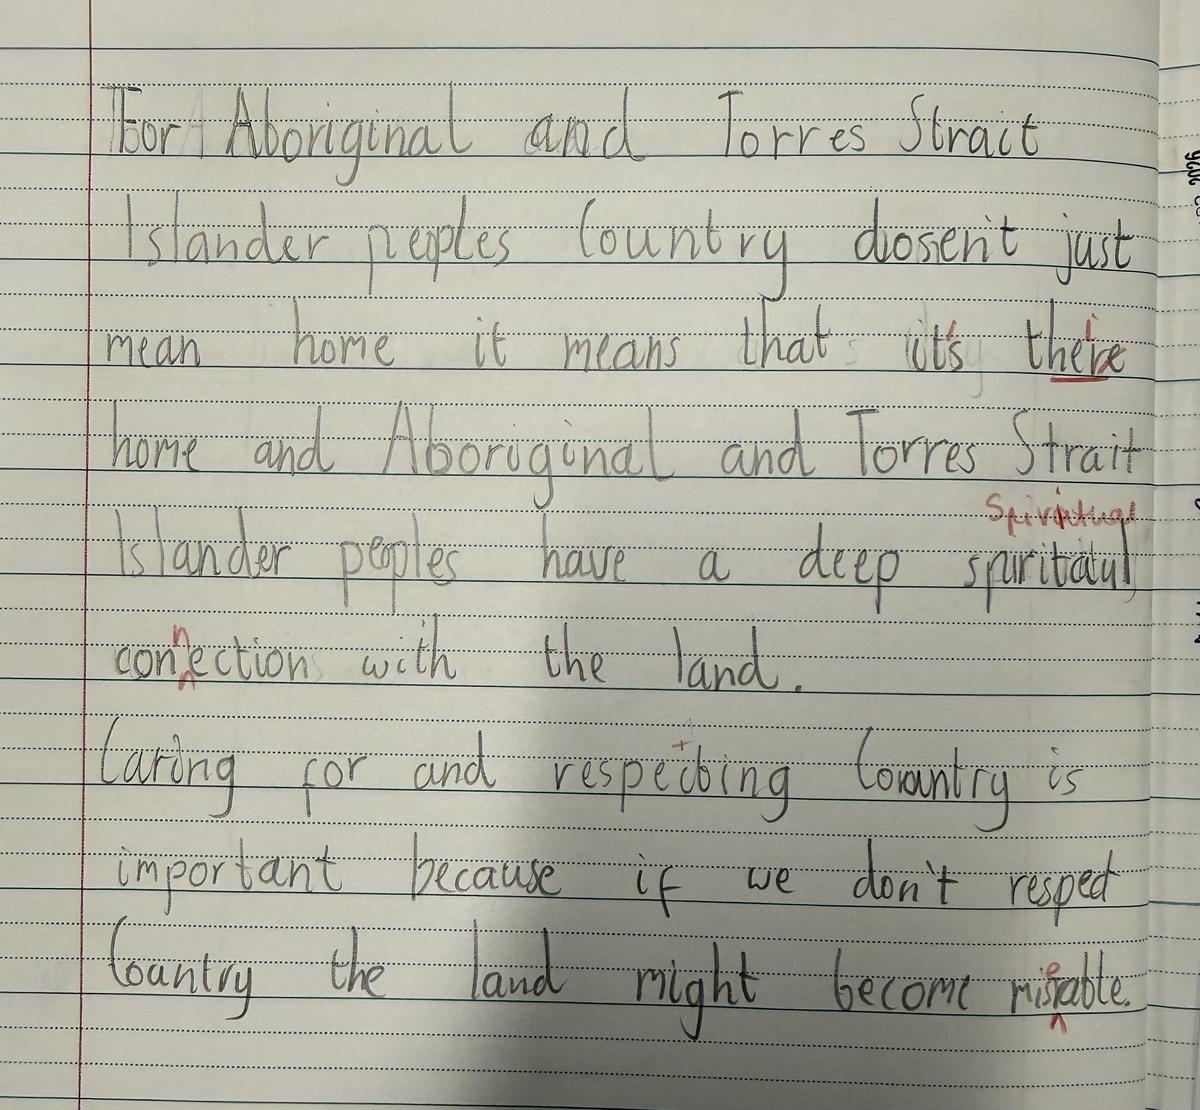 For Aboriginal and Torres Strait
Islander peoples Country dosen't just
mean home it means that it's there
home and Aboriginal and Torres Strait
Spiritual
Islander peoples have a deep spuritatul
n
conection with the land.
Caring for and respecting Country is
important because if we don't respect
Country the land might become misrable.
e